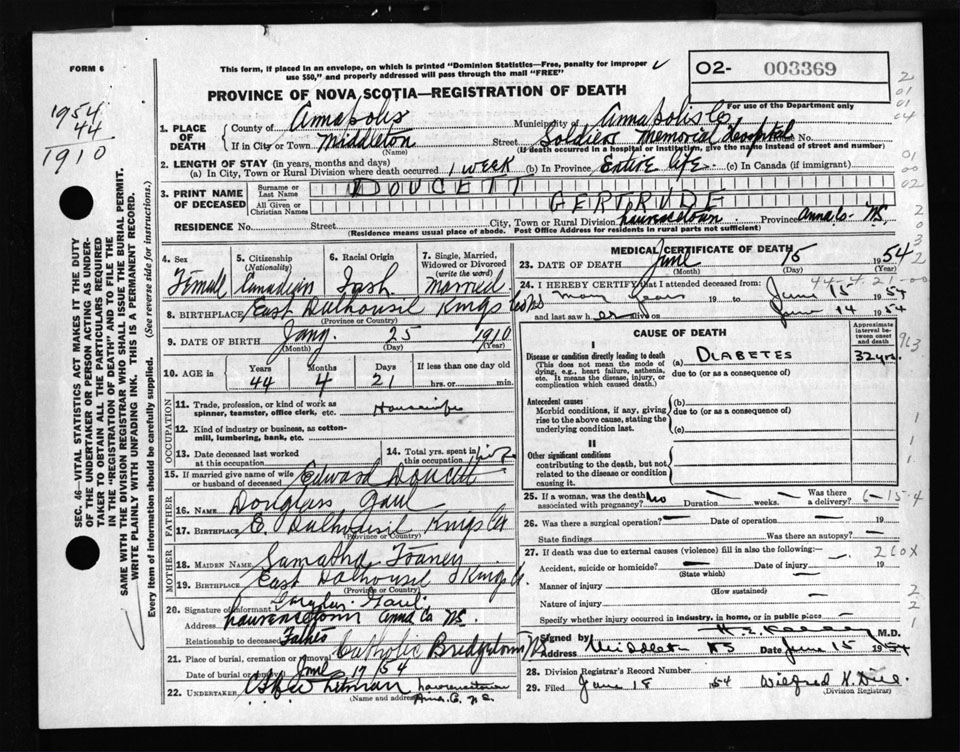 FORM 6
This form, if placed in an envelope, on which is printed "Dominion Statistics—Free, penalty for improper
use $50," and properly addressed will pass through the mail "FREE"
O2- 003369
PROVINCE OF NOVA SCOTIA—REGISTRATION OF DEATH
For use of the Department only
1954
44
1910
1. PLACE OF DEATH
County of Annapolis Municipality of Annapolis Co
If in City or Town Middleton Street Soldiers Memorial Hospital
(Name) (If death occurred in a hospital or institution, give the name instead of street and number)
2. LENGTH OF STAY (in years, months and days)
(a) In City, Town or Rural Division where death occurred 1 week (b) In Province Entire life. (c) In Canada (if immigrant)
3. PRINT NAME OF DECEASED
Surname or Last Name DOUCETT
All Given or Christian Names GERTRUDE
RESIDENCE No. Street City, Town or Rural Division Lawrencetown Province Anna Co. NS.
(Residence means usual place of abode. Post Office Address for residents in rural parts not sufficient)
SEC. 46—VITAL STATISTICS ACT MAKES IT THE DUTY
OF THE UNDERTAKER OR PERSON ACTING AS UNDER-
TAKER TO OBTAIN ALL THE PARTICULARS REQUIRED
IN THE "REGISTRATION OF DEATH" AND TO FILE THE
SAME WITH THE DIVISION REGISTRAR WHO SHALL ISSUE THE BURIAL PERMIT.
WRITE PLAINLY WITH UNFADING INK. THIS IS A PERMANENT RECORD.
Every item of information should be carefully supplied. (See reverse side for instructions.)
4. Sex Female
5. Citizenship (Nationality) Canadian
6. Racial Origin
7. Single, Married, Widowed or Divorced (write the word) Married
8. BIRTHPLACE East Dalhousil Kings Co NS
(Province or Country)
9. DATE OF BIRTH Jany. 25 1910
(Month) (Day) (Year)
10. AGE in Years Months Days If less than one day
44 4 21 hrs. or min.
OCCUPATION
11. Trade, profession, or kind of work as
spinner, teamster, office clerk, etc. Housewife
12. Kind of industry or business, as cotton-
mill, lumbering, bank, etc.
13. Date deceased last worked
at this occupation
14. Total yrs. spent in
this occupation
15. If married give name of wife
or husband of deceased Edward Doucett
FATHER
16. Name Douglass Gaul
17. Birthplace E. Dalhousil Kings Co
(Province or Country)
MOTHER
18. MAIDEN NAME Samatha
19. BIRTHPLACE East Dalhousil Kings Co.
(Province or Country)
20. Signature of informant Gaul
Address Lawrencetown Anna Co NS.
Relationship to deceased Father
21. Place of burial, cremation or removal Catholic Bridgetown
Date of burial or removal June 17 1954
22. UNDERTAKER Lawrencetown
(Name and address) Anna. Co. N.S.
MEDICAL CERTIFICATE OF DEATH
23. DATE OF DEATH June 15 1954
(Month) (Day) (Year)
24. I HEREBY CERTIFY that I attended deceased from:
Many Years 19 to June 15 1954
and last saw her alive on June 14 1954
CAUSE OF DEATH
Approximate interval between onset and death
I
Disease or condition directly leading to death (a) DIABETES 32 yrs.
(This does not mean the mode of dying, e.g., heart failure, asthenia, etc. It means the disease, injury, or complication which caused death.)
due to (or as a consequence of)
Antecedent causes
Morbid conditions, if any, giving rise to the above cause, stating the underlying condition last.
(b)
due to (or as a consequence of)
(c)
II
Other significant conditions
contributing to the death, but not related to the disease or condition causing it.
25. If a woman, was the death associated with pregnancy? No Duration weeks. Was there a delivery?
26. Was there a surgical operation? Date of operation 19
State findings Was there an autopsy?
27. If death was due to external causes (violence) fill in also the following:—
Accident, suicide or homicide? Date of injury 19
(State which)
Manner of injury
(How sustained)
Nature of injury
Specify whether injury occurred in industry, in home, or in public place
Signed by M.D.
Address Middleton NS Date June 15 1954
28. Division Registrar's Record Number
29. Filed June 18 1954
(Division Registrar)